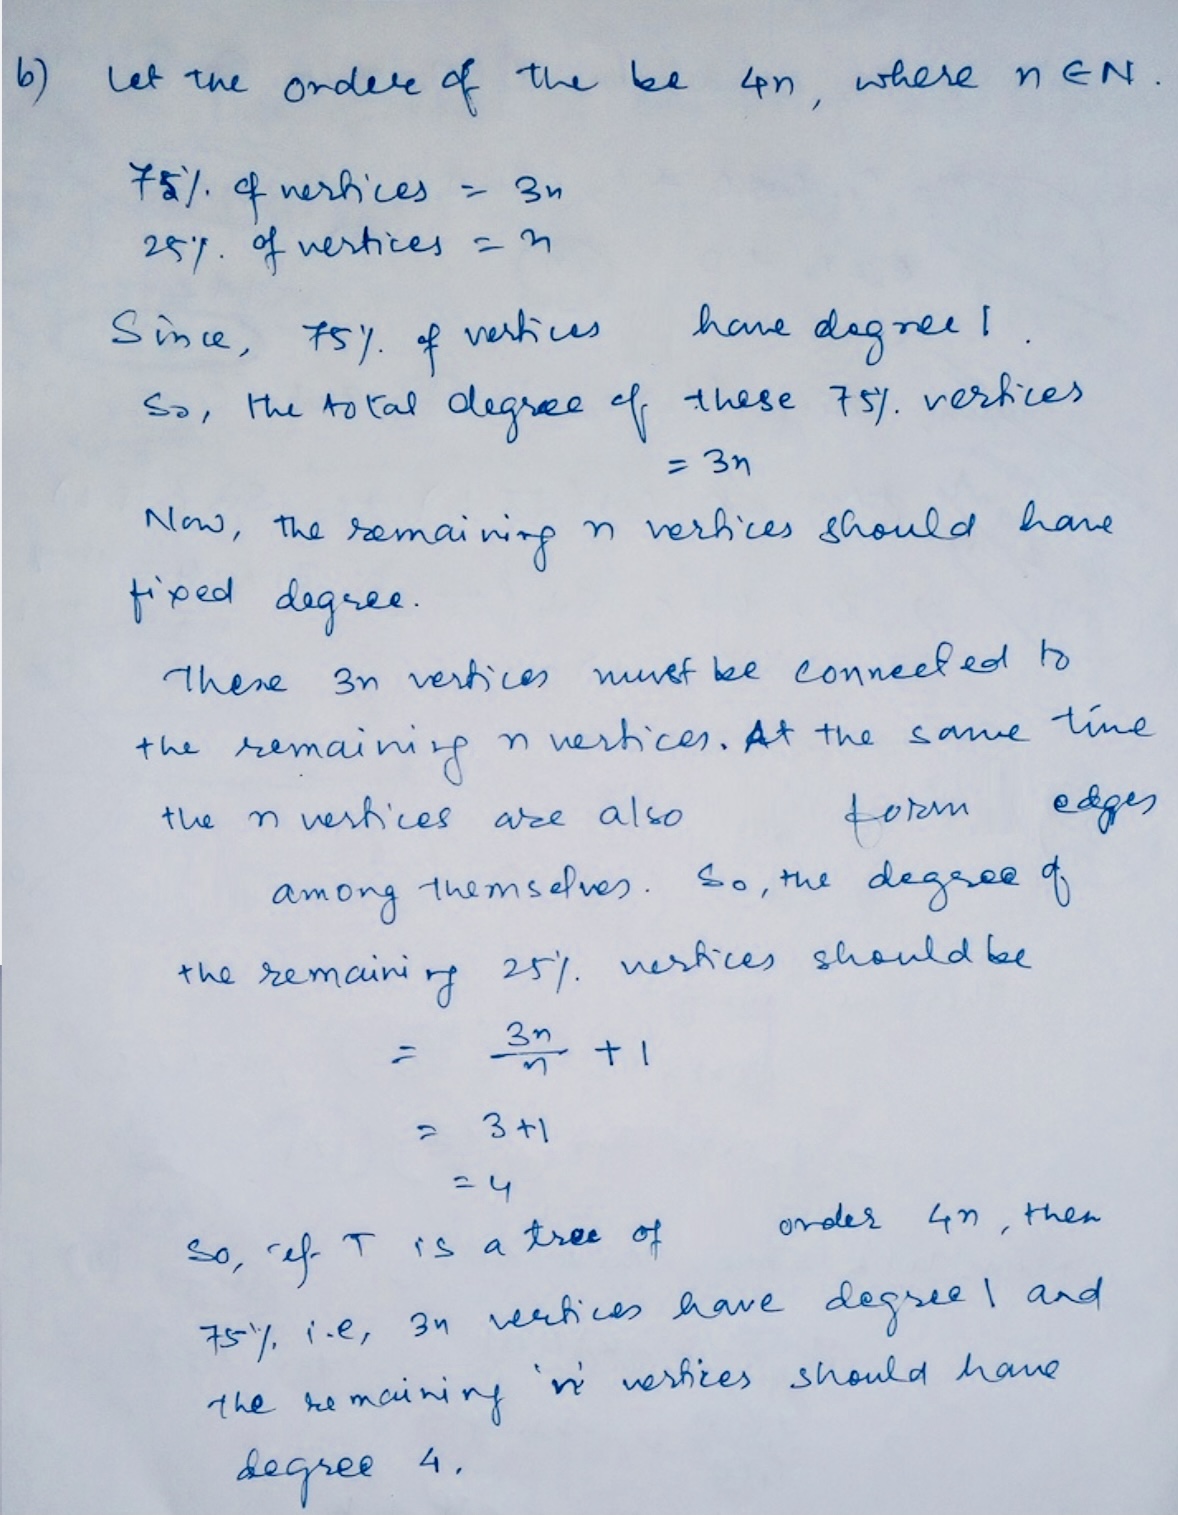 b) Let the ordere of the be 4n, where n ∈ N.
75% of vertices = 3n
25% of vertices = n
Since, 75% of vertices have degree 1.
So, the total degree of these 75% vertices
= 3n
Now, the remaining n vertices should have
fixed degree.
These 3n vertices must be connected to
the remaining n vertices. At the same time
the n vertices are also form edges
among themselves. So, the degree of
the remaining 25% vertices should be
= 3n/n + 1
= 3+1
= 4
So, if T is a tree of order 4n, then
75%, i.e, 3n vertices have degree 1 and
the remaining 'n' vertices should have
degree 4.